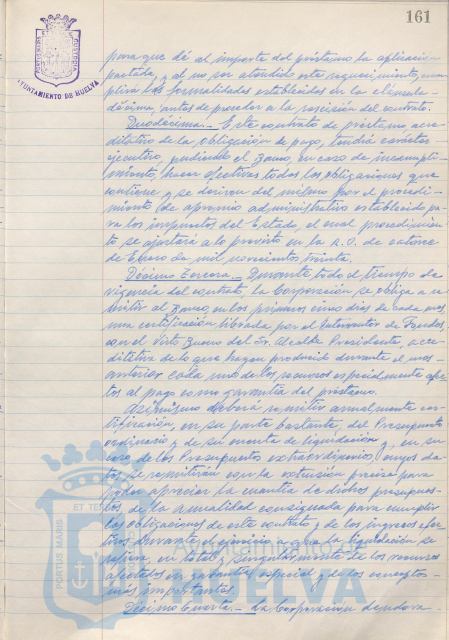 161
PORTUS MARIS
CUSTODIA
AYUNTAMIENTO DE HUELVA
para que dé al importe del préstamo la aplicación
pactada, y al no ser atendido este requerimiento, cum-
plirá las formalidades establecidas en la cláusula
décima antes de proceder a la rescisión del contrato.
Duodécima.- Este contrato de préstamo acre-
ditativo de la obligación de pago, tendrá carácter
ejecutivo, pudiendo el Banco, en caso de incumpli-
miento, hacer efectivas todas las obligaciones que
contiene y se deriven del mismo por el procedi-
miento de apremio administrativo establecido pa-
ra los impuestos del Estado, el cual procedimien-
to se ajustará a lo previsto en la R.O. de catorce
de Enero de mil novecientos treinta.
Décimo Tercera.- Durante todo el tiempo de
vigencia del contrato, la Corporación se obliga a re-
mitir al Banco, en los primeros cinco días de cada mes,
una certificación librada por el Interventor de Fondos,
con el Visto Bueno del Sr. Alcalde Presidente, acre-
ditativa de lo que hayan producido durante el mes
anterior cada uno de los recursos especialmente afec-
tos al pago como garantía del préstamo.
Asimismo deberá remitir anualmente cer-
tificación, en su parte bastante, del Presupuesto
ordinario y de su cuenta de liquidación y, en su
caso de los Presupuestos extraordinarios, cuyos da-
tos se remitirán con la extensión precisa para
poder apreciar la cuantía de dichos presupues-
tos, de la anualidad consignada para cumplir
las obligaciones de este contrato y de los ingresos efec-
tivos durante el ejercicio a que la liquidación se
refiera, en total y singularmente de los recursos
afectados en garantía especial y de los conceptos
más importantes.
Décimo Cuarta.- La Corporación deudora
PORTUS MARIS
ET TE
Ayuntamiento de
HUELVA